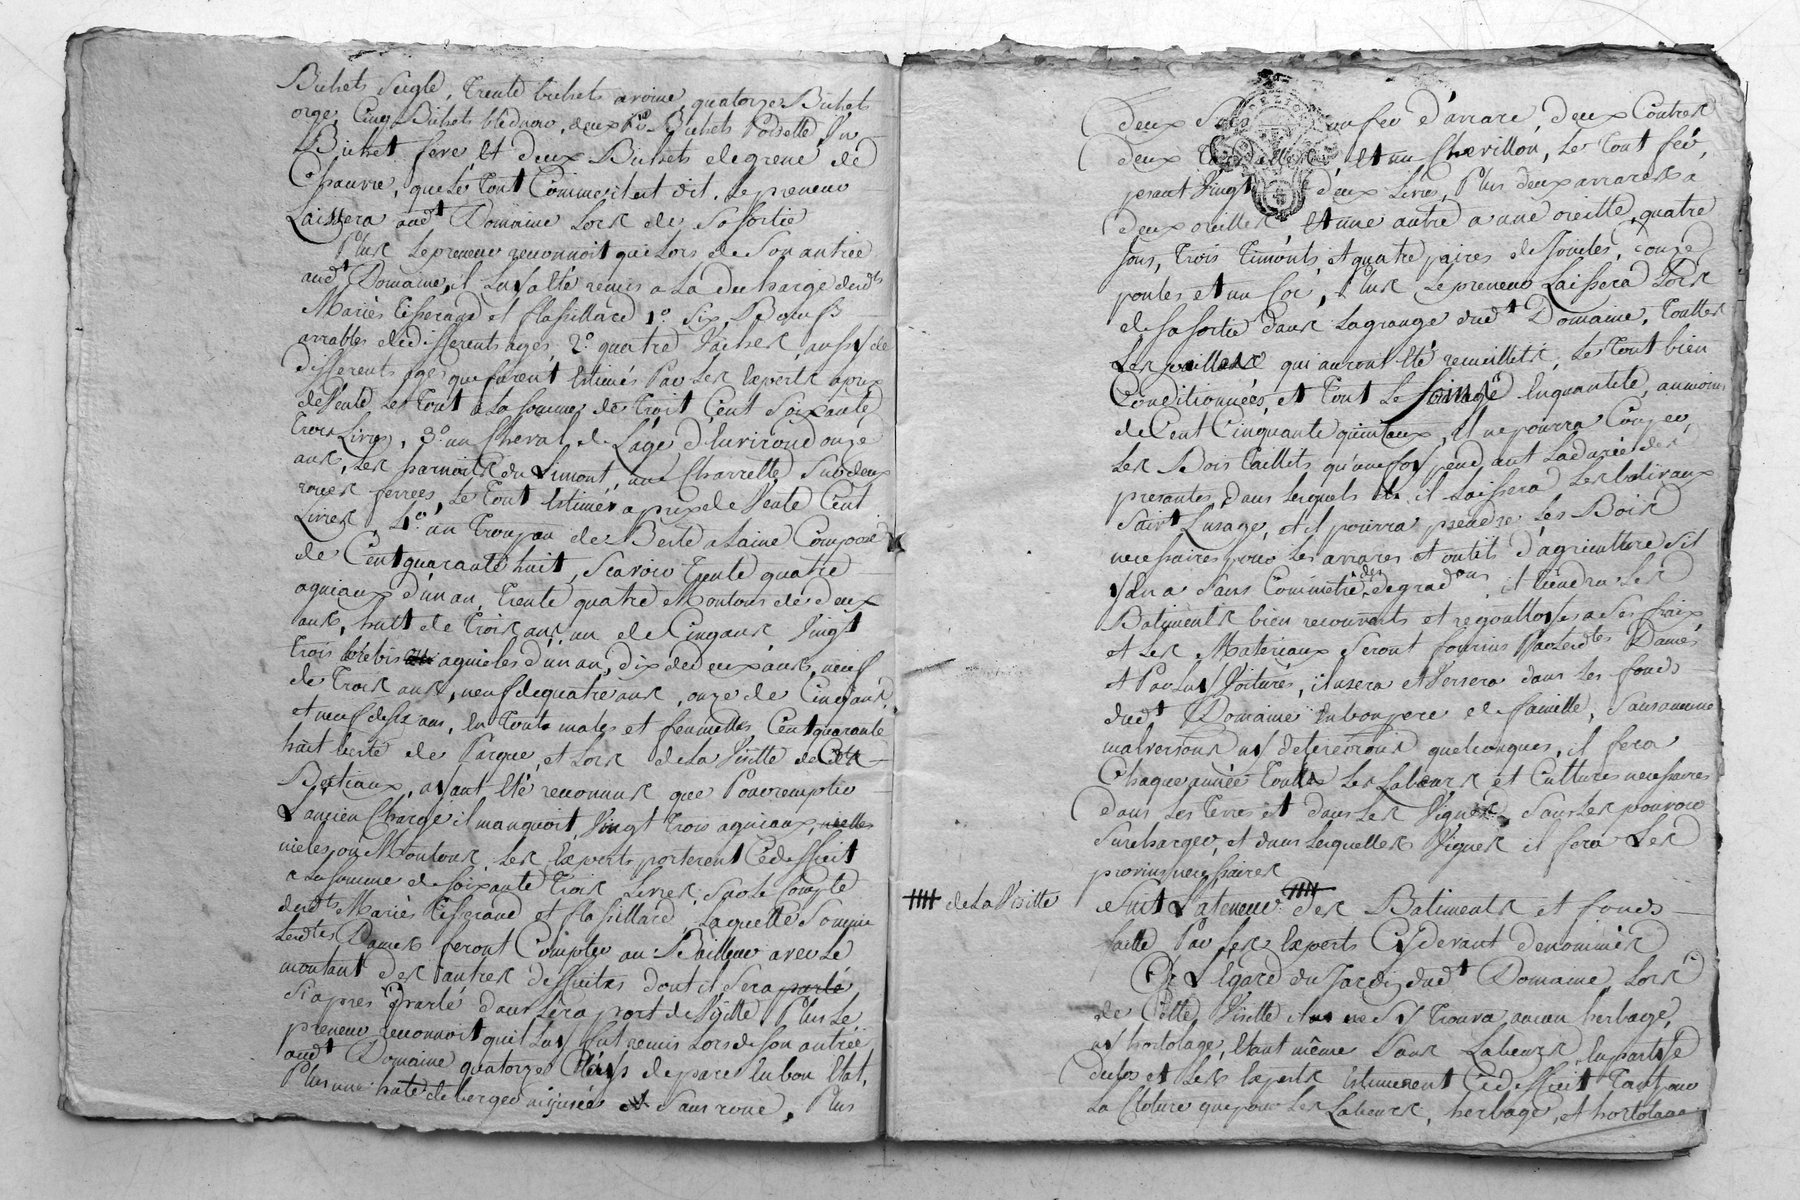 Bichets Seigle, trente bichets avoine, quatorze Bichets
orge, Cinq Bichets bled noir, deux Bichets Poisette, Un
Bichet feve, Et deux Bichets de grene de
Chanvre, que le tout Comme il est dit, le preneur
Laissera audt Domaine Lors de Sa Sortie
Plus Le preneur reconnoit que Lors de Son antrée
audt Domaine, il Luy a été remis a La decharge desdts
Mariés Tisserand et flassillard 1o Six Bœufs
arrables de differents ages, 2o quatre Vaches aussy de
differents ages que furent Estimés Par Les Experts a prix
de Vente Le tout a La somme de trois Cent Soixante
trois Livres, 3o un Cheval de L'age d'Environ d'onze
ans, Les harnoits du Limont, une Charrette Sur deux
roues ferrées, Le tout Estimé a prix de Vente Cent
Livres 4o un troupau de Berte a Laine Composé
de Cent quarante huit, Scavoir trente quatre
agniaux d'un an, trente quatre Moutons de deux
ans, huit de trois ans un de Cinq ans Vingt
trois brebis agnieles d'un an, dix de deux ans, neuf
de trois ans, neuf de quatre ans, onze de Cinq ans,
et neuf de six ans, En tout males et femelles Cent quarante
huit berte de Parque, et Lors de La Visitte de Ces
Bestiaux, ayant Eté reconnus que Pour remplir
L'ancien Charge il manquoit Vingt trois agniaux,
nieles, ou Moutons, Les Experts porterent Ce deffieit
a La somme de soixante trois Livres, Sur Le Compte
desdts Mariés Tisserand et flassillard, Laquelle Somme
Lesdtes Dames feront Compter au Bailleur avec Le
montant des autres deffieits dont il Sera parlé
Si apres parlé dans Le raport de Visitte, Plus Le
preneur reconnoit qu'il Luy fut remis Lors de Son antrée
audt Domaine quatorze Cléys de parc En bon Etat,
Plus une hute de berger aujusées et Sans roue, Plus
deux un feu d'arrare, deux Contres
deux Et un Chevillon, Le tout fér,
pesant Vingt deux Livres, Plus deux arrares a
deux oreilles Et une autre a une oreille, quatre
jous, trois timonts, et quatre paires de Joucles, douze
poules et un Coc, Plus Le preneur Laissera Lors
de sa sortie dans La grange dudt Domaine, toutes
Les pailles qui auront Eté recuillies, Le tout bien
Conditionnées, et tout Le foirage En quantité, au moins
de Cent Cinquante quintaux, il ne pourra Couper
Les Bois taillets qu'une foy pend ant La durée des
presantes, dans Lesquels il Laissera Les balivaux
Suivt L'usage, et il pourra prendre Les Bois
necessaires pour Les arrares et outils d'agriculture s'il
y en a Sans Commetre des degradons, il tiendra Les
Batiments bien recouverts et regouttoyés a Ses fraix
et Les Materiaux Seront fournis Par Lesdtes Dames
et Par Luy Voiturés, il usera et Versera dans Les fonds
dudt Domaine En bon pere de famille, Sans aucune
malversons ny deterérions quelconques, il fera
Chaque année toutes Les Labours et Cultures necessaires
dans Les terres et dans Les Vignes, Sans Les pouvoir
Surcharger, et dans Lesquelles Vignes il fera Les
provins necessaires
Suit La teneur Des Batiments et fonds
de La Visitte
faitte Par Les Experts Cy devant denommés
A L'Egard du Jardin dudt Domaine, Lors
de Cette Visitte il ne S'y trouva aucun herbage,
ny hortolage, Etant même Sans Labours, En partie
declos et Les Experts Estimerent Ce deffieit tant pour
La Cloture que pour Les Labours, herbage, et hortolage